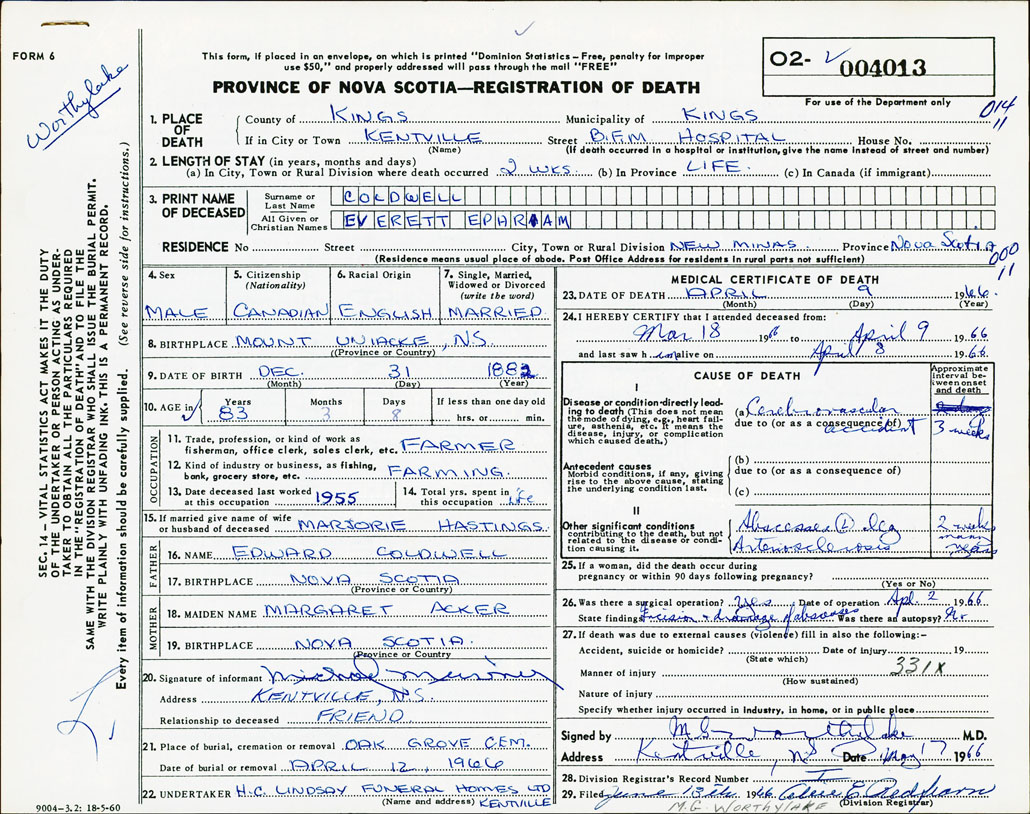 FORM 6
Worthylake
This form, if placed in an envelope, on which is printed "Dominion Statistics – Free, penalty for improper
use $50," and properly addressed will pass through the mail "FREE"
PROVINCE OF NOVA SCOTIA—REGISTRATION OF DEATH
O2- 004013
For use of the Department only
014
11
1. PLACE OF DEATH
County of KINGS Municipality of KINGS
If in City or Town KENTVILLE Street B.F.M HOSPITAL House No.
(Name) (If death occurred in a hospital or institution, give the name instead of street and number)
2. LENGTH OF STAY (in years, months and days)
(a) In City, Town or Rural Division where death occurred 2 WKS (b) In Province LIFE. (c) In Canada (if immigrant)
3. PRINT NAME OF DECEASED
Surname or Last Name COLDWELL
All Given or Christian Names EVERETT EPHRIAM
RESIDENCE No Street City, Town or Rural Division NEW MINAS Province Nova Scotia
(Residence means usual place of abode. Post Office Address for residents in rural parts not sufficient)
000
11
4. Sex MALE
5. Citizenship (Nationality) CANADIAN
6. Racial Origin ENGLISH
7. Single, Married, Widowed or Divorced (write the word) MARRIED
8. BIRTHPLACE MOUNT UNIACKE, N.S.
(Province or Country)
9. DATE OF BIRTH DEC. 31 1882
(Month) (Day) (Year)
10. AGE in Years 83 Months 3 Days 8 If less than one day old hrs. or min.
OCCUPATION
11. Trade, profession, or kind of work as
fisherman, office clerk, sales clerk, etc. FARMER
12. Kind of industry or business, as fishing,
bank, grocery store, etc. FARMING.
13. Date deceased last worked at this occupation 1955
14. Total yrs. spent in this occupation life
15. If married give name of wife
or husband of deceased MARJORIE HASTINGS
FATHER
16. NAME EDWARD COLDWELL
17. BIRTHPLACE NOVA SCOTIA
(Province or Country)
MOTHER
18. MAIDEN NAME MARGARET ACKER
19. BIRTHPLACE NOVA SCOTIA.
(Province or Country
20. Signature of informant
Address KENTVILLE, N.S.
Relationship to deceased FRIEND
21. Place of burial, cremation or removal OAK GROVE CEM.
Date of burial or removal APRIL 12, 1966
22. UNDERTAKER H.C. LINDSAY FUNERAL HOMES LTD
(Name and address) KENTVILLE
MEDICAL CERTIFICATE OF DEATH
23. DATE OF DEATH APRIL 9 1966.
(Month) (Day) (Year)
24. I HEREBY CERTIFY that I attended deceased from:
Mar 18 196 to April 9 1966
and last saw him alive on April 8 1966
CAUSE OF DEATH
Approximate interval between onset and death
I
Disease or condition directly leading to death (This does not
the mode of dying, e.g., heart failure, asthenia, etc. It means the
disease, injury, or complication
which caused death.)
(a) Cerebrovascular
due to (or as a consequence of) accident 3 weeks
Antecedent causes
Morbid conditions, if any, giving
rise to the above cause, stating
the underlying condition last.
(b)
due to (or as a consequence of)
(c)
II
Other significant conditions
contributing to the death, but not
related to the disease or condition causing it.
Abscesses (L) leg 2 weeks
Arteriosclerosis many years
25. If a woman, did the death occur during
pregnancy or within 90 days following pregnancy?
(Yes or No)
26. Was there a surgical operation? Yes Date of operation Apl. 2 1966
State findings Incision + drainage of abscesses Was there an autopsy? No
27. If death was due to external causes (violence) fill in also the following:–
Accident, suicide or homicide? Date of injury 19
(State which)
Manner of injury 331X
(How sustained)
Nature of injury
Specify whether injury occurred in industry, in home, or in public place
Signed by M.G. Worthylake M.D.
Address Kentville, N.S. Date May 17 1966
28. Division Registrar's Record Number
29. Filed June 13th 1966
(Division Registrar)
M.G. WORTHYLAKE
SEC. 14 – VITAL STATISTICS ACT MAKES IT THE DUTY
OF THE UNDERTAKER OR PERSON ACTING AS UNDERTAKER TO OBTAIN ALL THE PARTICULARS REQUIRED
IN THE "REGISTRATION OF DEATH" AND TO FILE THE
SAME WITH THE DIVISION REGISTRAR WHO SHALL ISSUE THE BURIAL PERMIT.
WRITE PLAINLY WITH UNFADING INK. THIS IS A PERMANENT RECORD.
Every item of information should be carefully supplied. (See reverse side for instructions.)
9004-3.2: 18-5-60